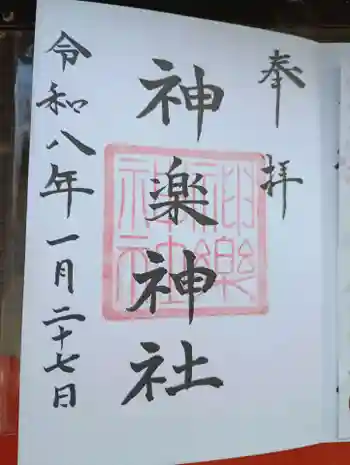 奉拝
神楽神社
令和八年一月二十七日
神樂
神社